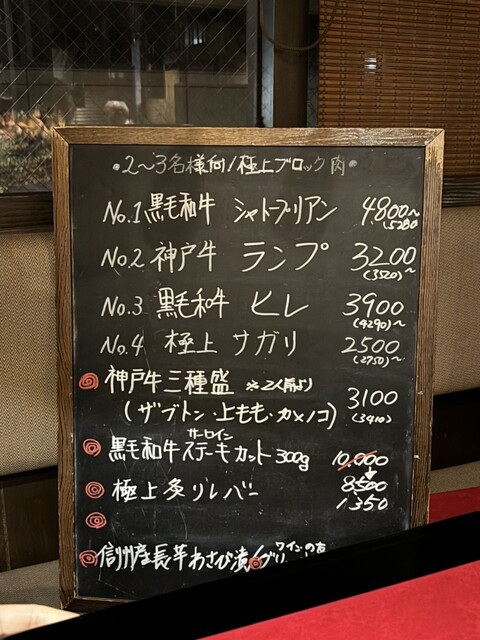 2〜3名様向/極上ブロック肉
No.1 黒毛和牛 シャトーブリアン 4800〜
(5280
No.2 神戸牛 ランプ 3200
(3520)〜
No.3 黒毛和牛 ヒレ 3900
(4290)〜
No.4 極上 サガリ 2500
(2750)〜
神戸牛三種盛 ※2人前より 3100
(ザブトン・上もも・カメノコ) (3410)
サーロイン
黒毛和牛ステーキカット300g 10,000
8500
極上炙りレバー 1350
信州産長芋わさび漬
ワインのお